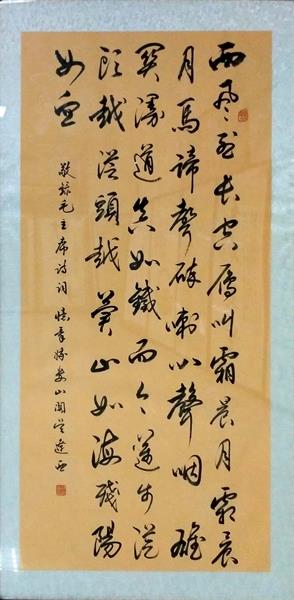 西風烈长空雁叫霜晨月霜晨
月馬蹄聲碎喇叭聲咽雄
関漫道真如鐵而今邁步從
头越從頭越蒼山如海殘陽
如血
敬録毛主席詩词憶秦娥娄山関